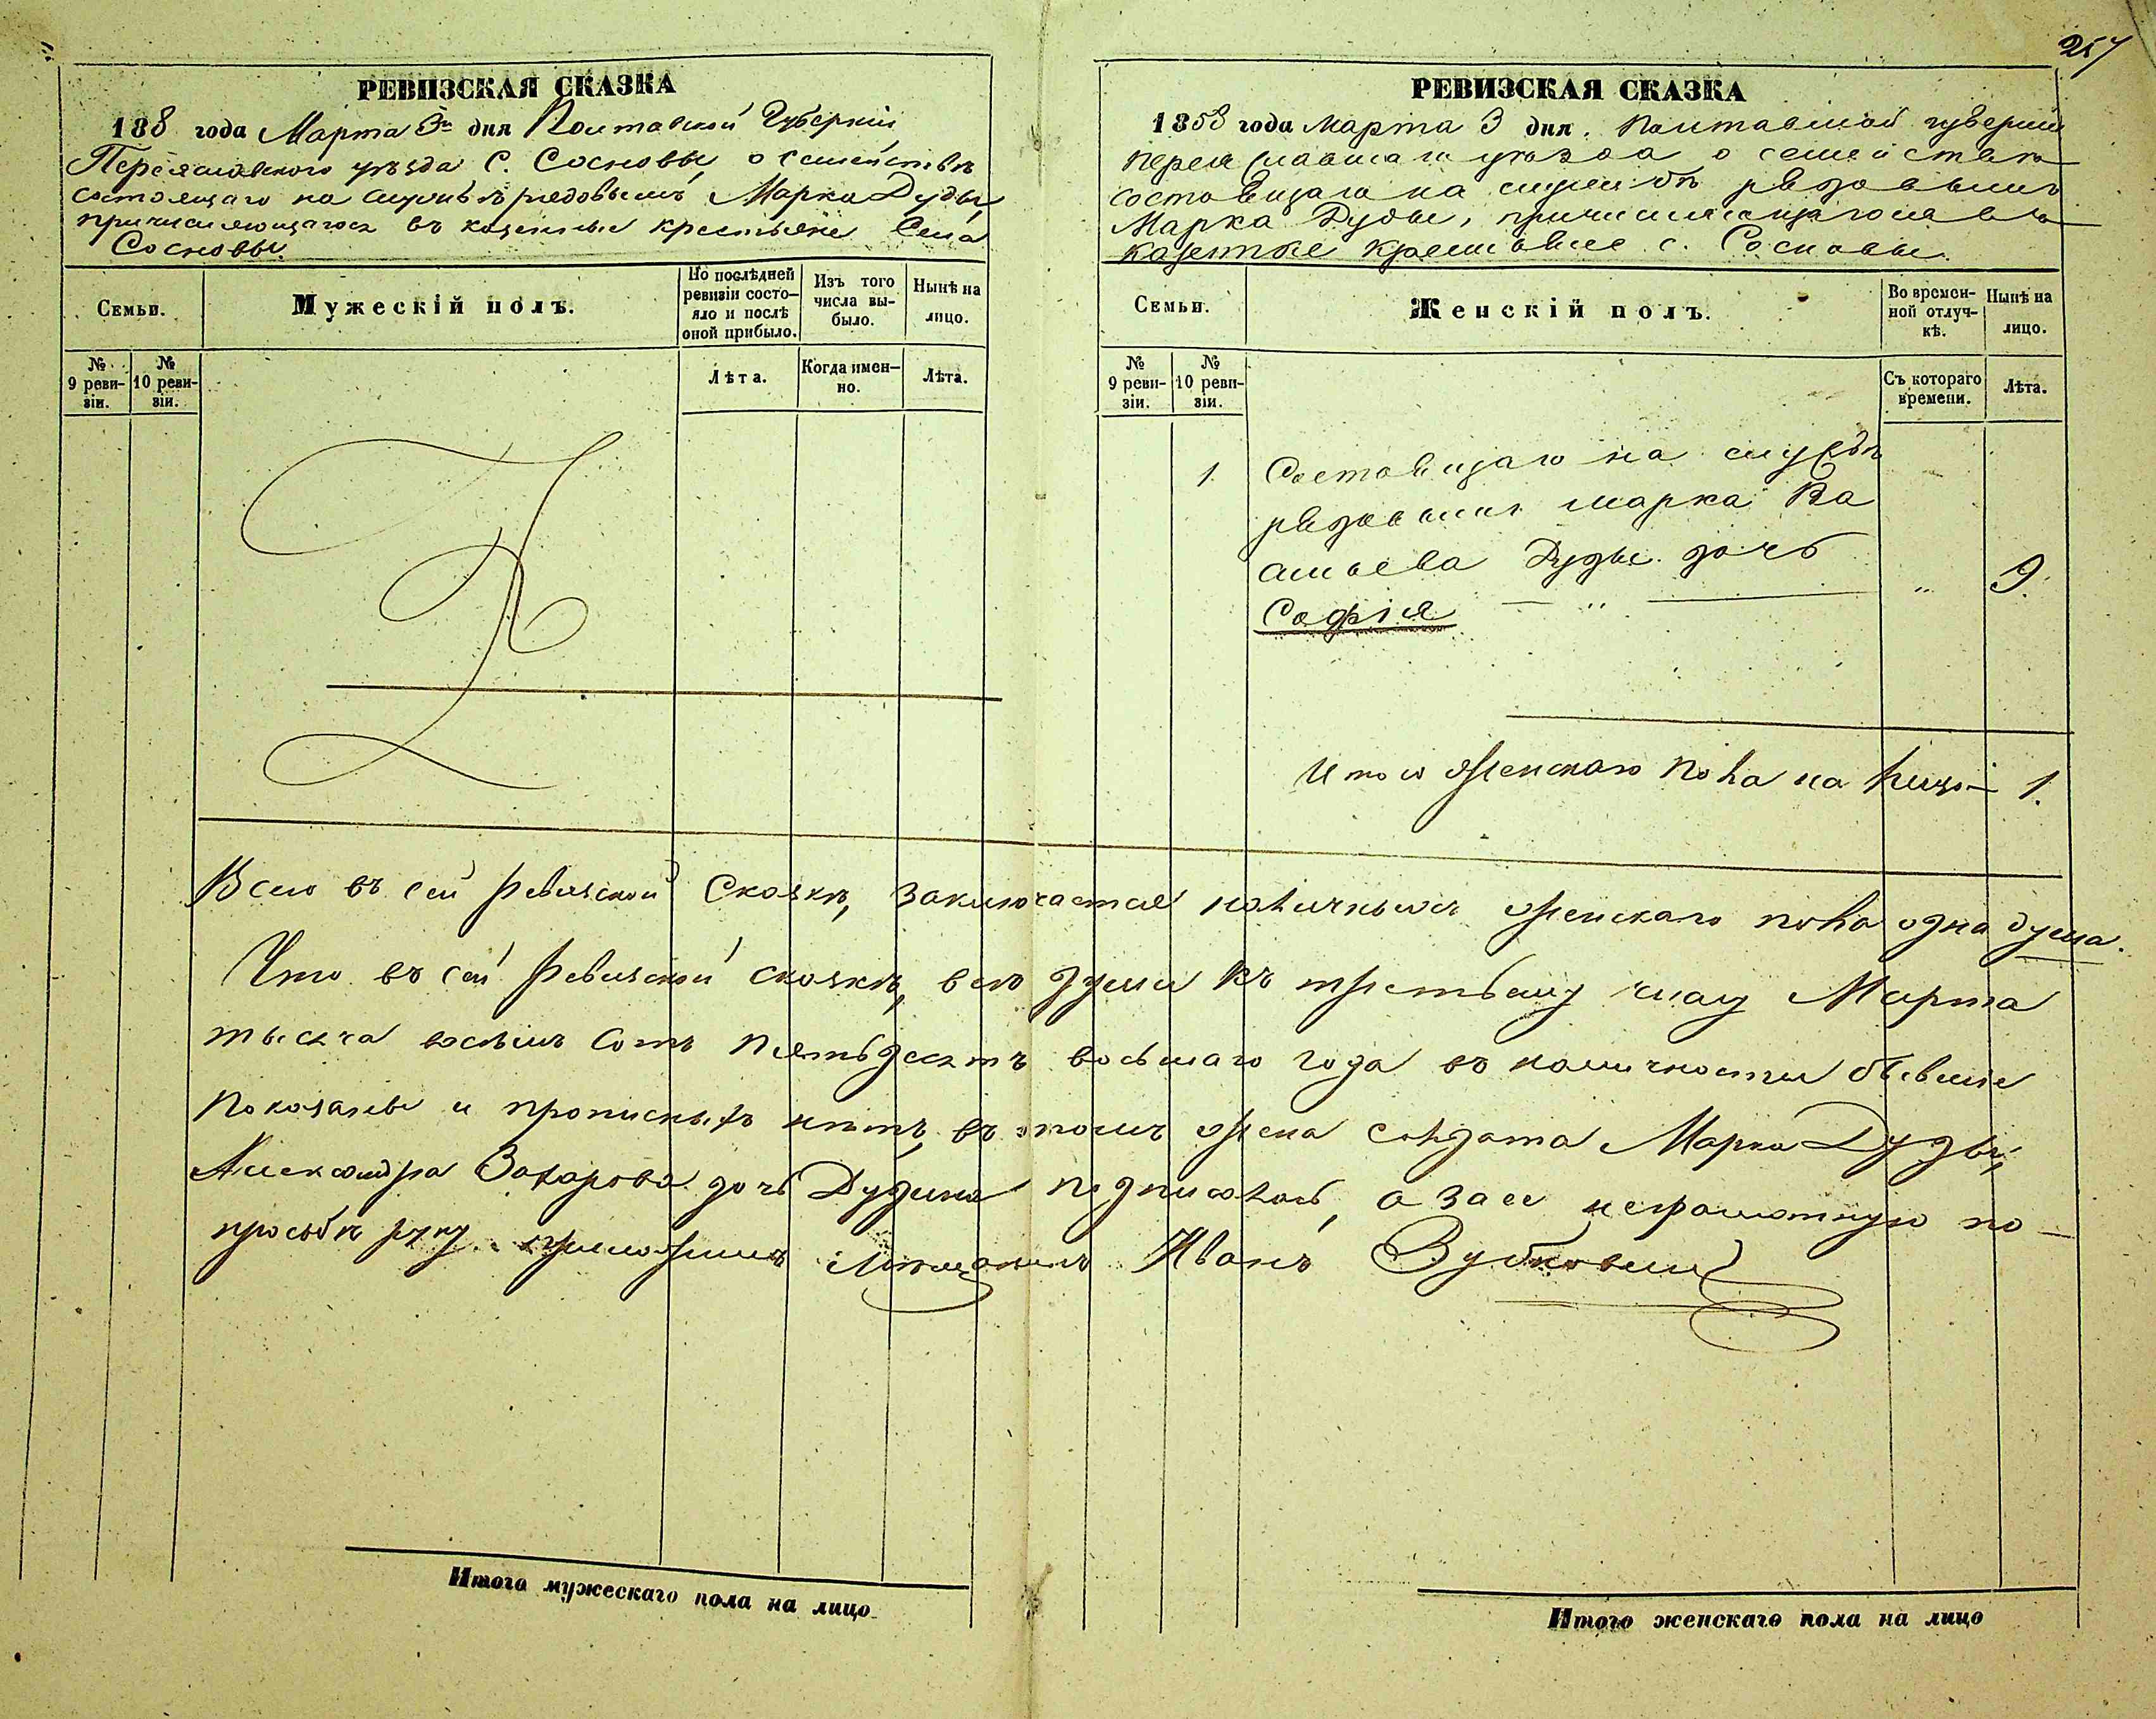 257
РЕВИЗСКАЯ СКАЗКА
188 года Марта 3го дня Полтавской Губерніи
Переяславского уѣзда С. Сосновы, о семействѣ
состоящаго на службѣ рядовымъ Марка Дуды
причисляющагося въ казенные крестьяне Села
Сосновы.
Семьи.
Мужескій полъ.
По послѣдней ревизіи состо-
яло и послѣ оной прибыло.
Изъ того числа вы-
было.
Нынѣ на лицо.
№ 9 реви-
зіи.
№ 10 реви-
зіи.
Лѣта.
Когда имен-
но.
Лѣта.
РЕВИЗСКАЯ СКАЗКА
1858 года Марта 3 дня. Полтавской губерніи
Переяславскаго уѣзда о семействѣ
состоящаго на службѣ рядовымъ
Марка Дуды, причисляющагося въ
казенные крестьяне с. Сосновы.
Семьи.
Женскій полъ.
Во времен-
ной отлуч-
кѣ.
Нынѣ на лицо.
№ 9 реви-
зіи.
№ 10 реви-
зіи.
Съ котораго времени.
Лѣта.
1. Состоящаго на службѣ
рядовымъ Марка Ва
сильева Дуды дочь
Софія — „ — „ 9.
Итого женскаго пола на лицо — 1.
Всего въ сей ревизской Сказкѣ, заключается наличныхъ женскаго пола одна душа.
Что въ сей ревизской сказкѣ, всѣ души къ третьему числу Марта
тысяча восемь сотъ пятьдесятъ восьмаго года въ наличности бывшіе
показаны и прописныхъ нѣтъ, въ томъ жена солдата Марка Дуды,
Александра Захарова дочь Дудина подписалась, а за ее неграмотную по
просьбѣ руку приложилъ Мѣщанинъ Иванъ
Итого мужескаго пола на лицо
Итого женскаго пола на лицо